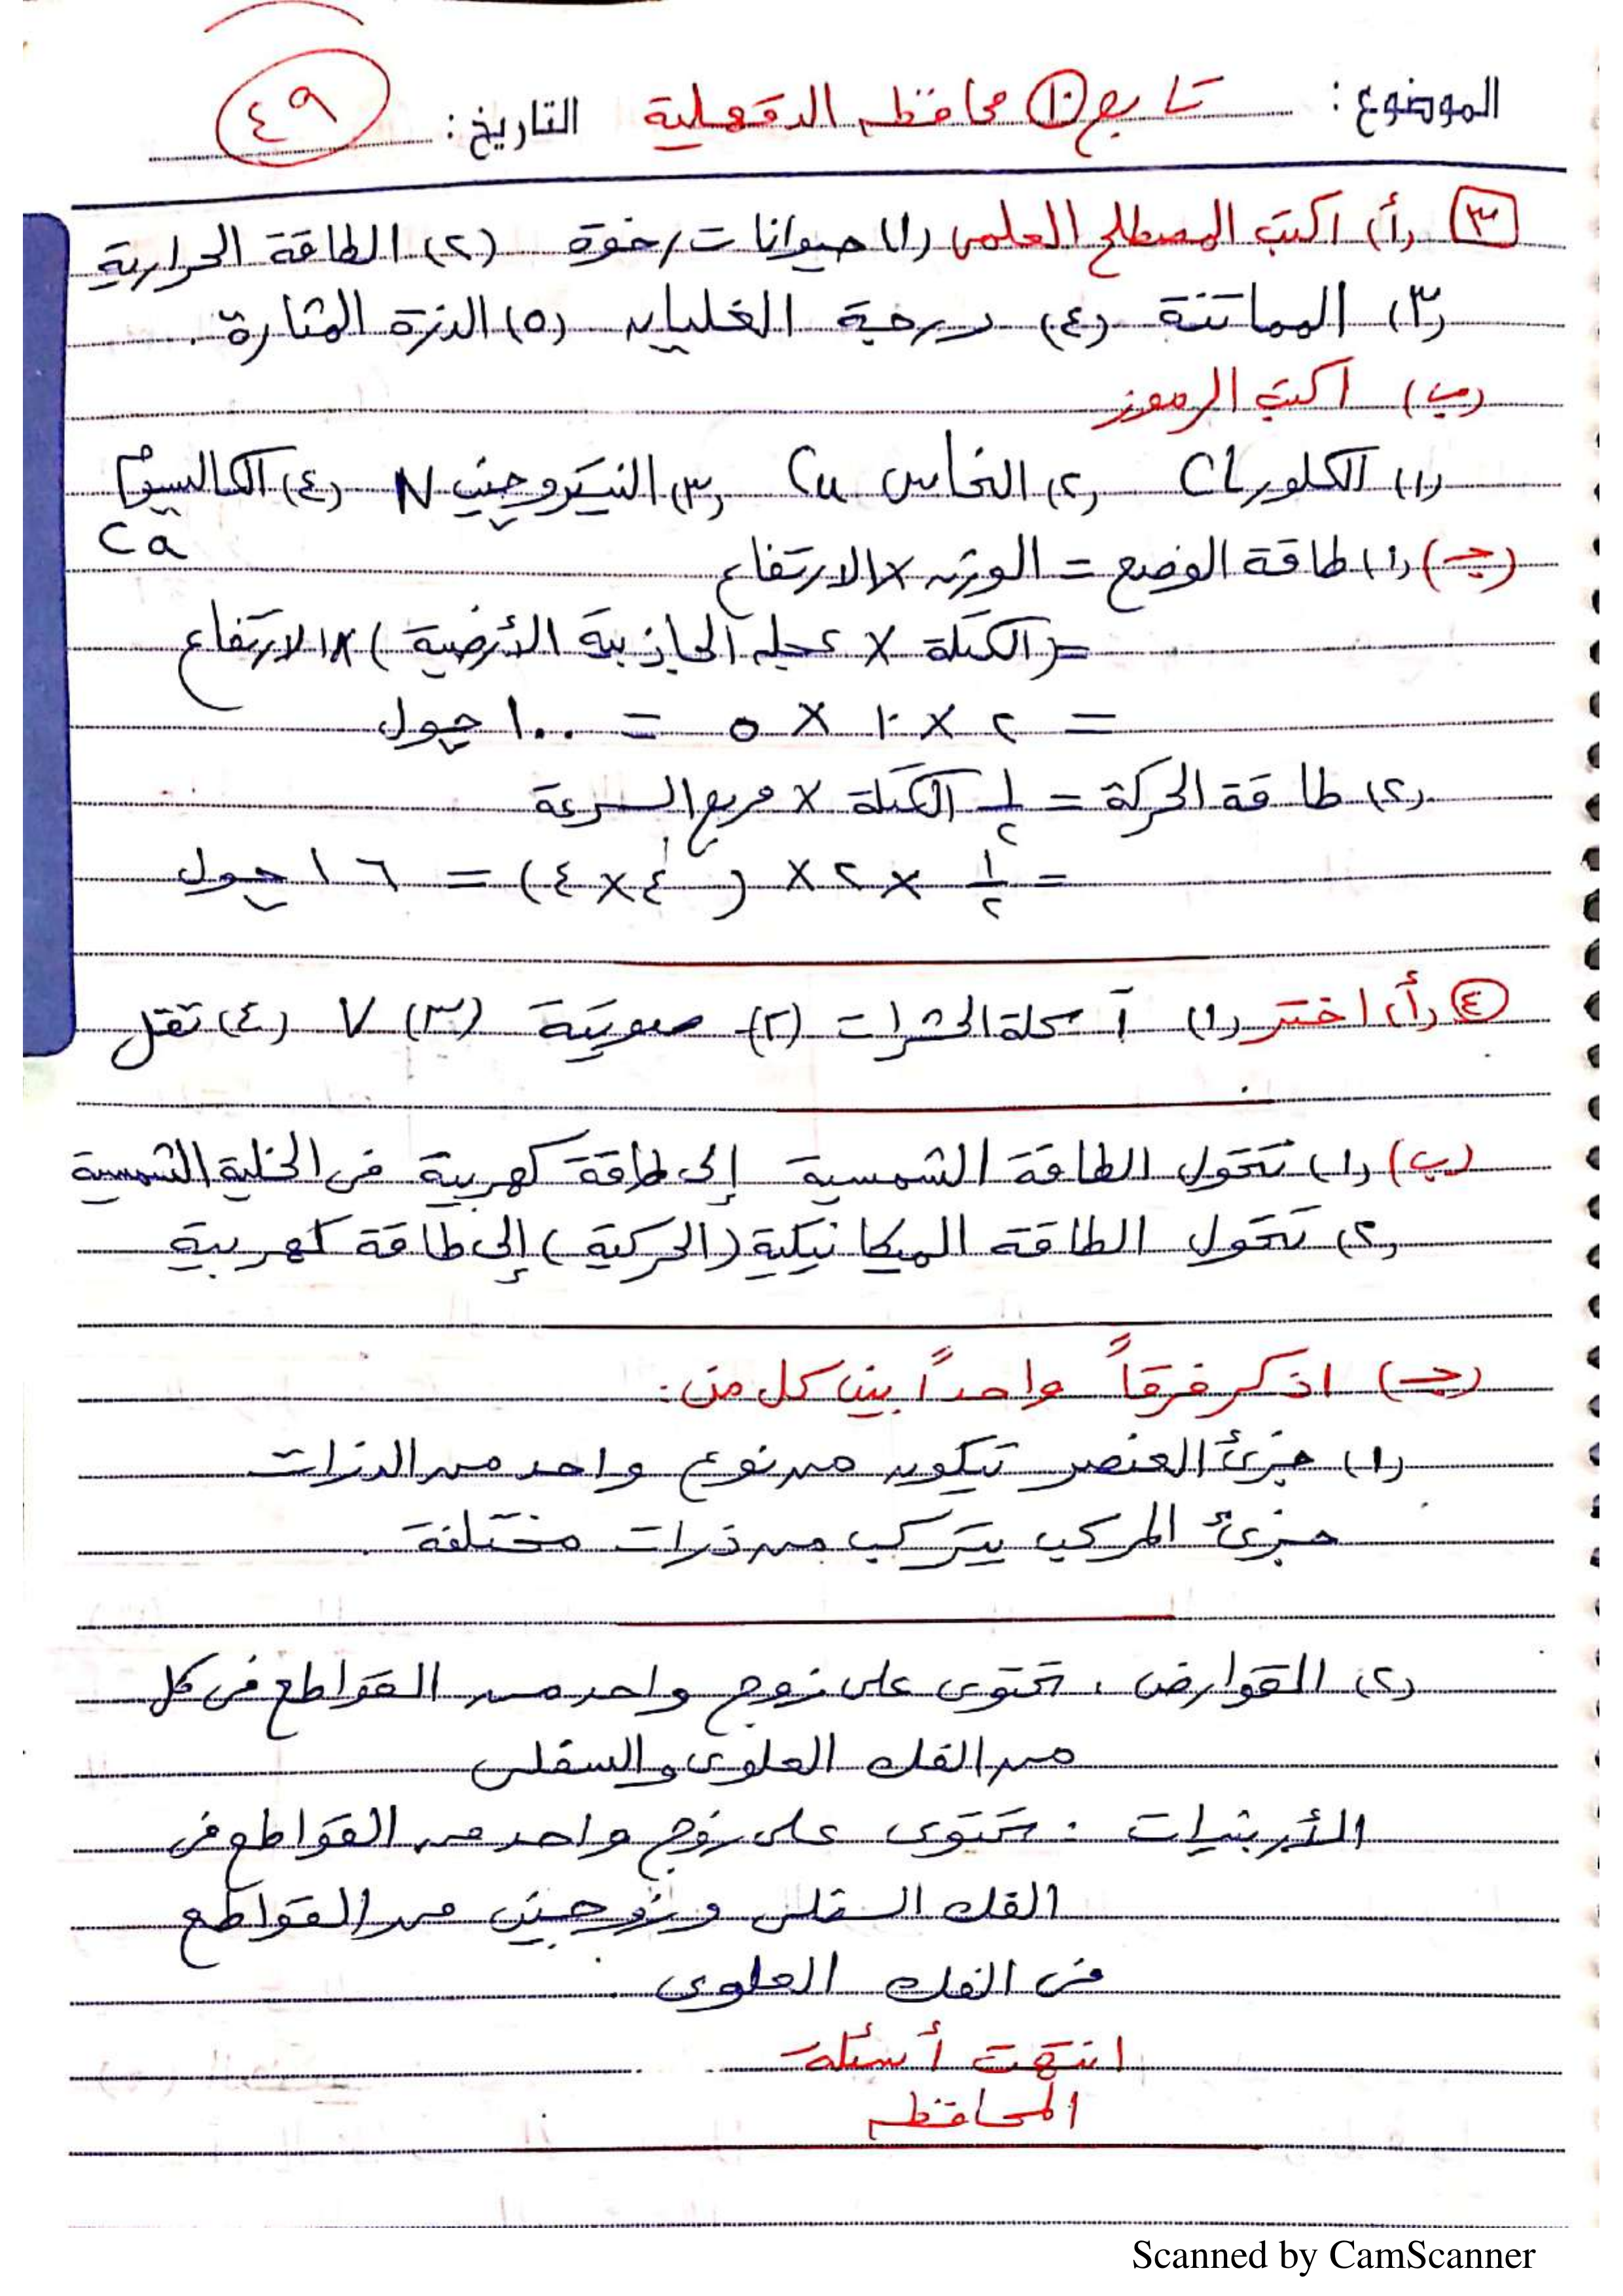 الموضوع: تابع ١٠ محافظه الدقهلية التاريخ: ٤٩
٣ (أ) اكتب المصطلح العلمى (١) حيوانات رخوة (٢) الطاقة الحرارية
(٣) المماتنة (٤) درجة الغليان (٥) الذرة المثارة.
(ب) اكتب الرموز
(١) الكلور Cl (٢) النحاس Cu (٣) النيتروجين N (٤) الكالسيوم
Ca
(جـ) (١) طاقة الوضع = الوزن × الارتفاع
= (الكتلة × عجله الجاذبية الأرضية) × الارتفاع
= ٢ × ١٠ × ٥ = ١٠٠ جول
(٢) طاقة الحركة = ١/٢ الكتلة × مربع السرعة
= ١/٢ × ٢ × (٤ × ٤) = ١٦ جول
٤ (أ) اختر (١) آكلة الحشرات (٢) صوتية (٣) ٧ (٤) تقل
(ب) (١) تتحول الطاقة الشمسية إلى طاقة كهربية فى الخلية الشمسية
(٢) تتحول الطاقة الميكانيكية (الحركية) إلى طاقة كهربية
(جـ) اذكر فرقاً واحداً بين كل من:
(١) جزئ العنصر تيكون من نوع واحد من الذرات
جزئ المركب يتركب من ذرات مختلفة.
(٢) القوارض: تحتوى على زوج واحد من القواطع فى كل
من الفك العلوى والسفلى
الأرنبيات: تحتوى على زوج واحد من القواطع فى
الفك السفلى وزوجين من القواطع
فى الفك العلوى.
انتهت أسئلة
المحافظه
Scanned by CamScanner